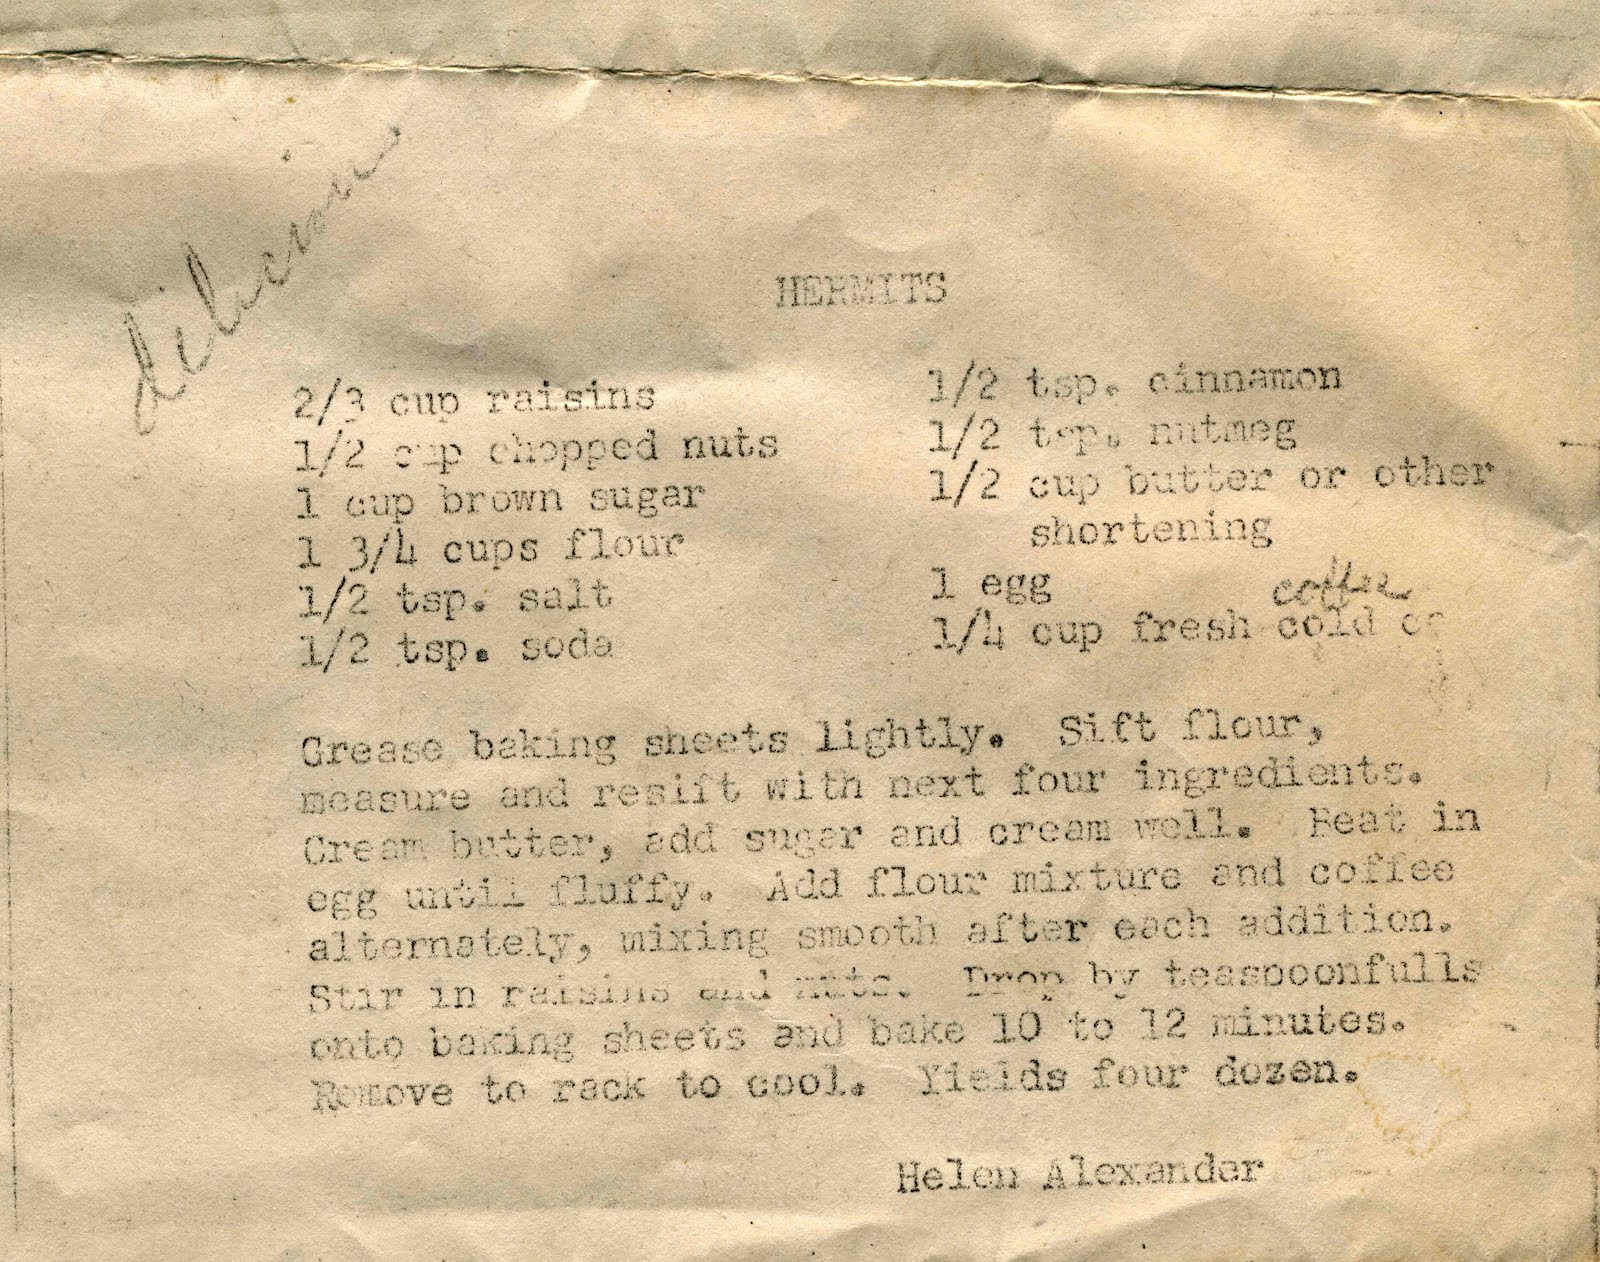 delicious
HERMITS
2/3 cup raisins
1/2 cup chopped nuts
1 cup brown sugar
1 3/4 cups flour
1/2 tsp. salt
1/2 tsp. soda
1/2 tsp. cinnamon
1/2 tsp. nutmeg
1/2 cup butter or other
shortening
1 egg
coffee
1/4 cup fresh cold
Grease baking sheets lightly. Sift flour,
measure and resift with next four ingredients.
Cream butter, add sugar and cream well. Beat in
egg until fluffy. Add flour mixture and coffee
alternately, mixing smooth after each addition.
Stir in raisins and nuts. Drop by teaspoonfulls
onto baking sheets and bake 10 to 12 minutes.
Remove to rack to cool. Yields four dozen.
Helen Alexander